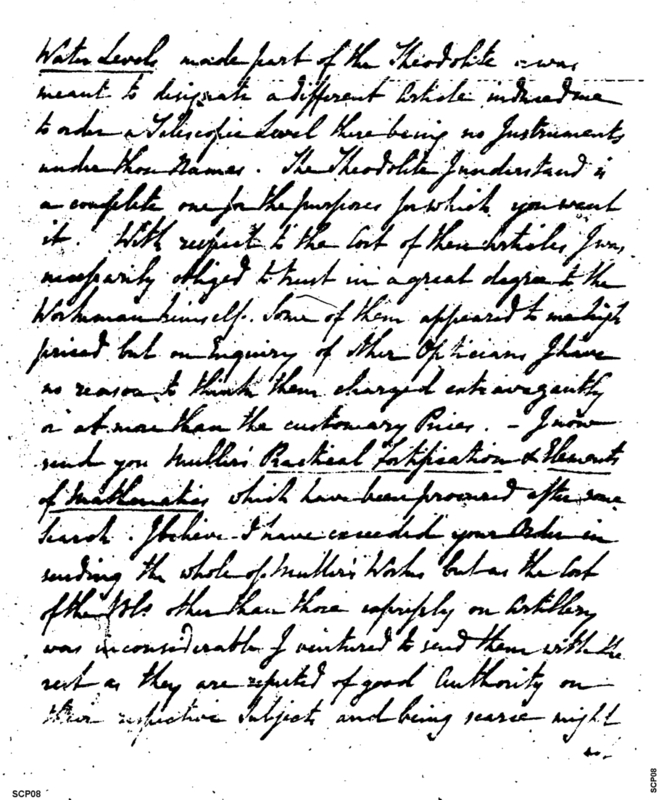 Water Levels made part of the Theodolite or was
meant to designate a different Article induced me
to order a Telescopic Level there being no Instruments
under those Names. The Theodolite I understand is
a complete one for the purposes for which you want
it. With respect to the Cost of these Articles I was
necessarily obliged to trust in a great degree to the
Workman himself. Some of them appeared to me high
priced but on Enquiry of other Opticians I have
no reason to think them charged extravagantly
or at more than the customary Prices. – I now
send you Muller's Practical Fortification & Elements
of Mathematics which have been procured after some
Search. I believe I have exceeded your Order in
sending the whole of Muller's Works but as the Cost
of the Vols. other than those expressly on Artillery
was inconsiderable I ventured to send them with the
rest as they are reputed of good Authority on
their respective Subjects and being scarce might
SCP08
SCP08